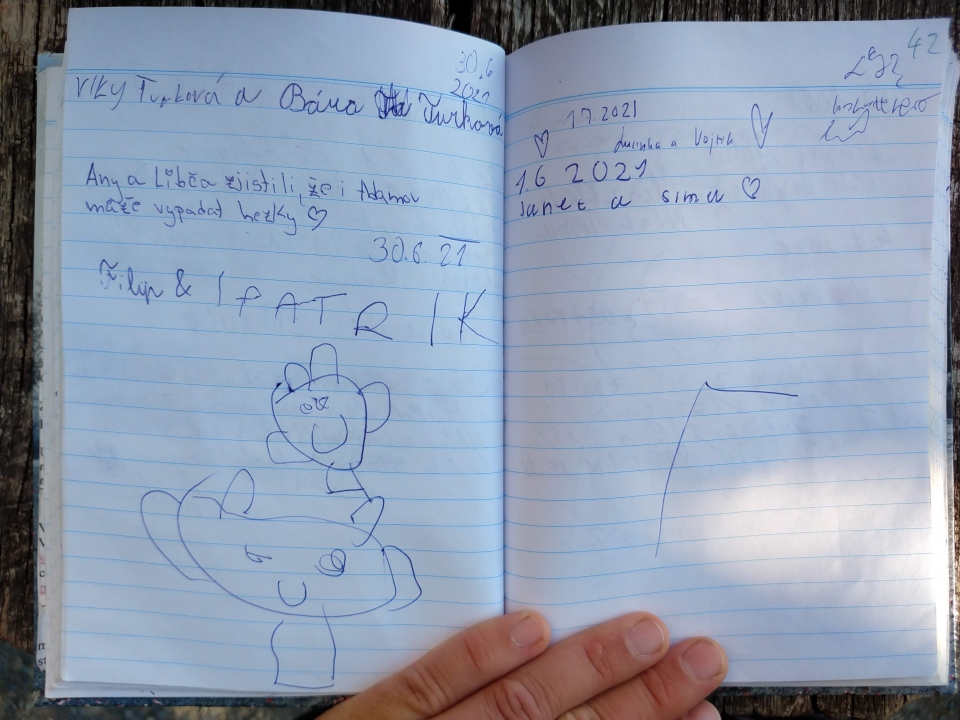 30.6
2021
Viky Turková a Bára Turková
Any a Liběa zjistili, že i Adamov
může vypadat hezky ♡
30.6.21
Filip & PATRIK
42
17.2021
Lucinka a Vojtík
1.6 2021
Janet a sima ♡